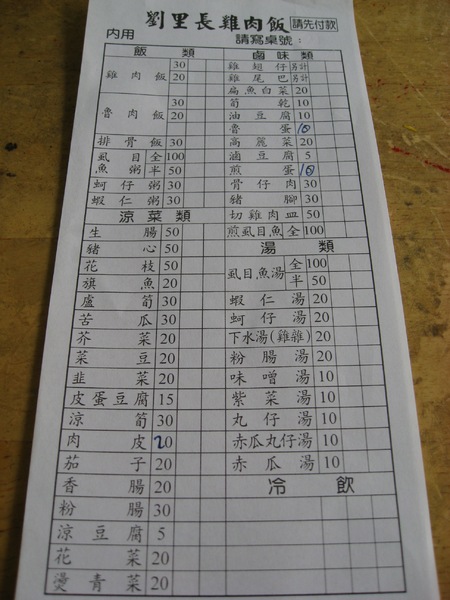 劉里長雞肉飯 請先付款
內用 請寫桌號：
飯類
雞肉飯 30
20
魯肉飯 30
20
排骨飯 30
虱目魚粥 全 100
半 50
蚵仔粥 30
蝦仁粥 30
涼菜類
生腸 50
豬心 50
花枝 50
旗魚 20
蘆筍 30
苦瓜 30
芥菜 20
菜豆 20
韭菜 20
皮蛋豆腐 15
涼筍 30
肉皮 20
茄子 20
香腸 20
粉腸 30
涼豆腐 5
花菜 20
燙青菜 20
滷味類
雞翅仔 另計
雞尾巴 另計
扁魚白菜 20
筍乾 10
油豆腐 10
魯蛋 10
高麗菜 20
滷豆腐 5
煎蛋 10
骨仔肉 30
豬腳 30
切雞肉皿 50
煎虱目魚 全 100
湯類
虱目魚湯 全 100
半 50
蝦仁湯 20
蚵仔湯 20
下水湯(雞雜) 20
粉腸湯 20
味噌湯 10
紫菜湯 10
丸仔湯 10
赤瓜丸仔湯 10
赤瓜湯 10
冷飲